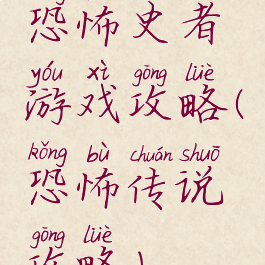 恐怖史者
yóu xì gōng lüè
游戏攻略(
kǒng bù chuán shuō
恐怖传说
gōng lüè
攻略)